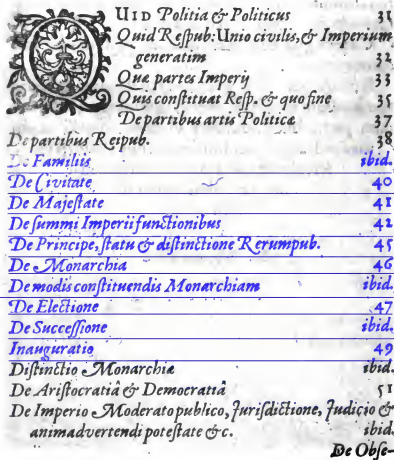 QUID Politia & Politicus 31
Quid Respub: Unio civilis, & Imperium
generatim 32
Quæ partes Imperij 33
Quis constituat Resp. & quo fine 35
De partibus artis Politicæ 37
De partibus Reipub. 38
De Familiis ibid.
De Civitate 40
De Majestate 41
De summi Imperii functionibus 42
De Principe, statu & distinctione Rerumpub. 45
De Monarchia 46
De modis constituendis Monarchiam ibid.
De Electione 47
De Successione ibid.
Inauguratio 49
Distinctio Monarchiæ ibid.
De Aristocratiâ & Democratiâ 51
De Imperio Moderato publico, Jurisdictione, Judicio &
animadvertendi potestate &c. ibid.
De Obse-